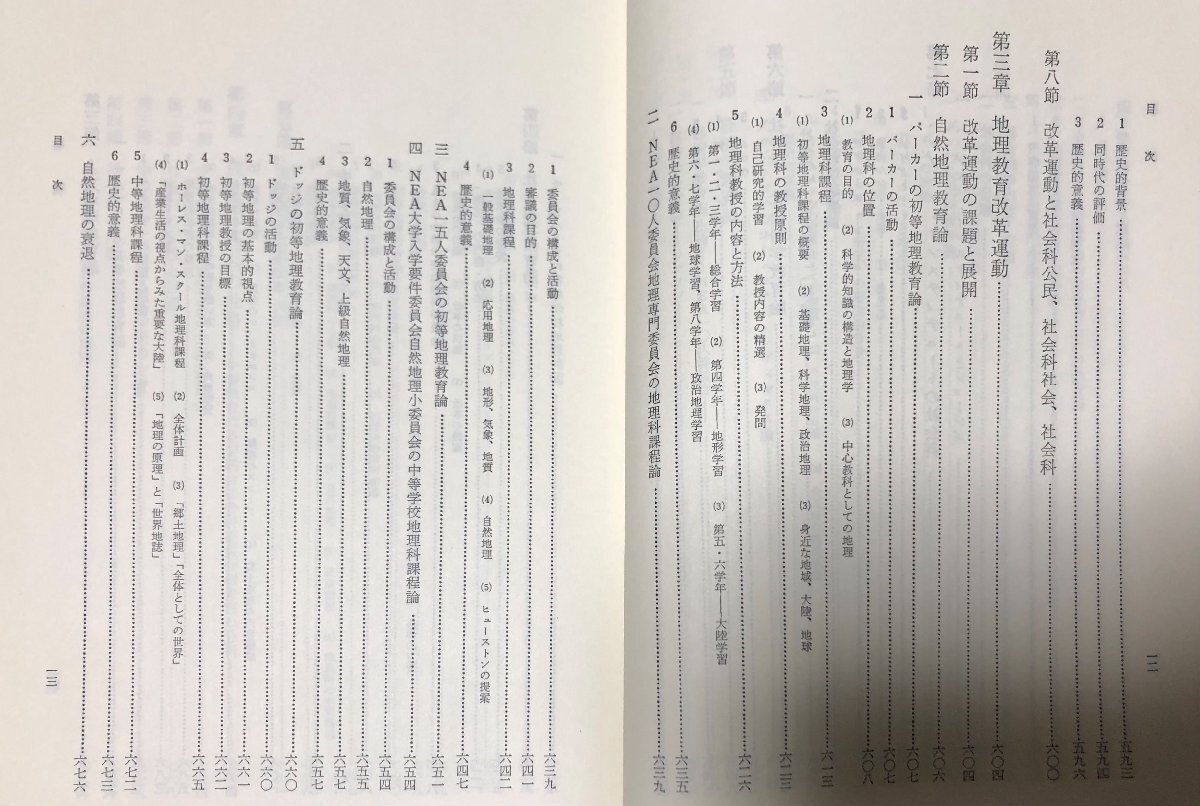 目次
1 歴史的背景……五九三
2 同時代の評価……五九四
3 歴史的意義……五九六
第八節 改革運動と社会科公民、社会科社会、社会科……六〇〇
第三章 地理教育改革運動……六〇四
第一節 改革運動の課題と展開……六〇四
第二節 自然地理教育論……六〇六
一 パーカーの初等地理教育論……六〇七
1 パーカーの活動……六〇七
2 地理科の位置……六〇八
⑴ 教育の目的 ⑵ 科学的知識の構造と地理学 ⑶ 中心教科としての地理
3 地理科課程……六一三
⑴ 初等地理科課程の概要 ⑵ 基礎地理、科学地理、政治地理 ⑶ 身近な地域、大陸、地球
4 地理科の教授原則……六二三
⑴ 自己研究的学習 ⑵ 教授内容の精選 ⑶ 発問
5 地理科教授の内容と方法……六二六
⑴ 第一・二・三学年――総合学習 ⑵ 第四学年――地形学習 ⑶ 第五・六学年――大陸学習
⑷ 第六・七学年――地球学習、第八学年――政治地理学習
6 歴史的意義……六三五
二 NEA一〇人委員会地理専門委員会の地理科課程論……六三九
一二
1 委員会の構成と活動……六三九
2 審議の目的……六四一
3 地理科課程……六四二
⑴ 一般基礎地理 ⑵ 応用地理 ⑶ 地形、気象、地質 ⑷ 自然地理 ⑸ ヒューストンの提案
4 歴史的意義……六四七
三 NEA一五人委員会の初等地理教育論……六五一
四 NEA大学入学要件委員会自然地理小委員会の中等学校地理科課程論……六五四
1 委員会の構成と活動……六五四
2 自然地理……六五五
3 地質、気象、天文、上級自然地理……六五七
4 歴史的意義……六五七
五 ドッジの初等地理教育論……六六〇
1 ドッジの活動……六六〇
2 初等地理の基本的視点……六六一
3 初等地理教授の目標……六六二
4 初等地理科課程……六六五
⑴ ホーレス・マン・スクール地理科課程 ⑵ 全体計画 ⑶ 「郷土地理」「全体としての世界」
⑷ 「産業生活の視点からみた重要な大陸」 ⑸ 「地理の原理」と「世界地誌」
5 中等地理科課程……六七二
6 歴史的意義……六七三
六 自然地理の衰退……六七六
目次
一三